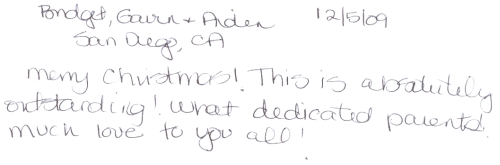 Bridget, Gavin + Aiden 12/5/09
San Diego, CA
Merry Christmas! This is absolutely
outstanding! What dedicated parents!
much love to you all!